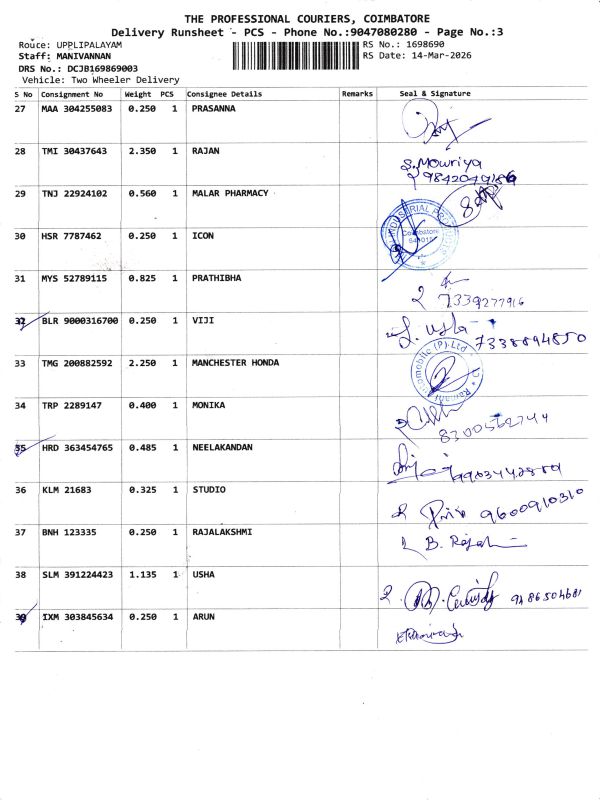 THE PROFESSIONAL COURIERS, COIMBATORE
Delivery Runsheet - PCS - Phone No.:9047080280 - Page No.:3
Route: UPPLIPALAYAM
RS No.: 1698690
Staff: MANIVANNAN
RS Date: 14-Mar-2026
DRS No.: DCJB169869003
Vehicle: Two Wheeler Delivery
S No Consignment No Weight PCS Consignee Details Remarks Seal & Signature
27 MAA 304255083 0.250 1 PRASANNA
28 TMI 30437643 2.350 1 RAJAN
S. Mowriya
29 TNJ 22924102 0.560 1 MALAR PHARMACY
INDUSTRIAL
Coimbatore
30 HSR 7787462 0.250 1 ICON
31 MYS 52789115 0.825 1 PRATHIBHA
7339277916
32 BLR 9000316700 0.250 1 VIJI
Usha 7338894850
33 TMG 200882592 2.250 1 MANCHESTER HONDA
(P).Ltd
34 TRP 2289147 0.400 1 MONIKA
8300562744
35 HRD 363454765 0.485 1 NEELAKANDAN
36 KLM 21683 0.325 1 STUDIO
9600910310
37 BNH 123335 0.250 1 RAJALAKSHMI
38 SLM 391224423 1.135 1 USHA
39 IXM 303845634 0.250 1 ARUN